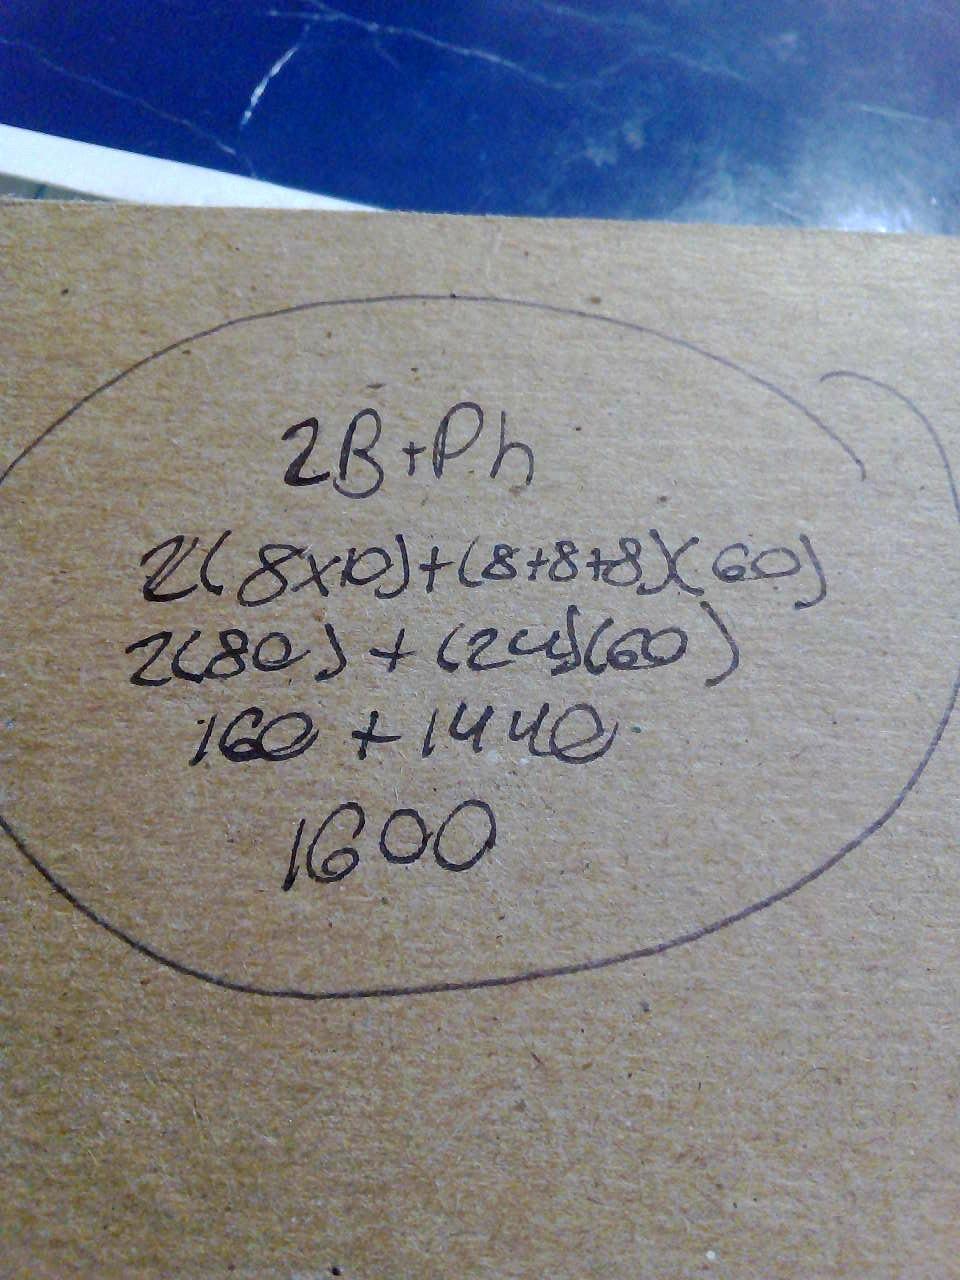 2B+Ph
2(8x10)+(8+8+8)(60)
2(80)+(24)(60)
160+1440
1600